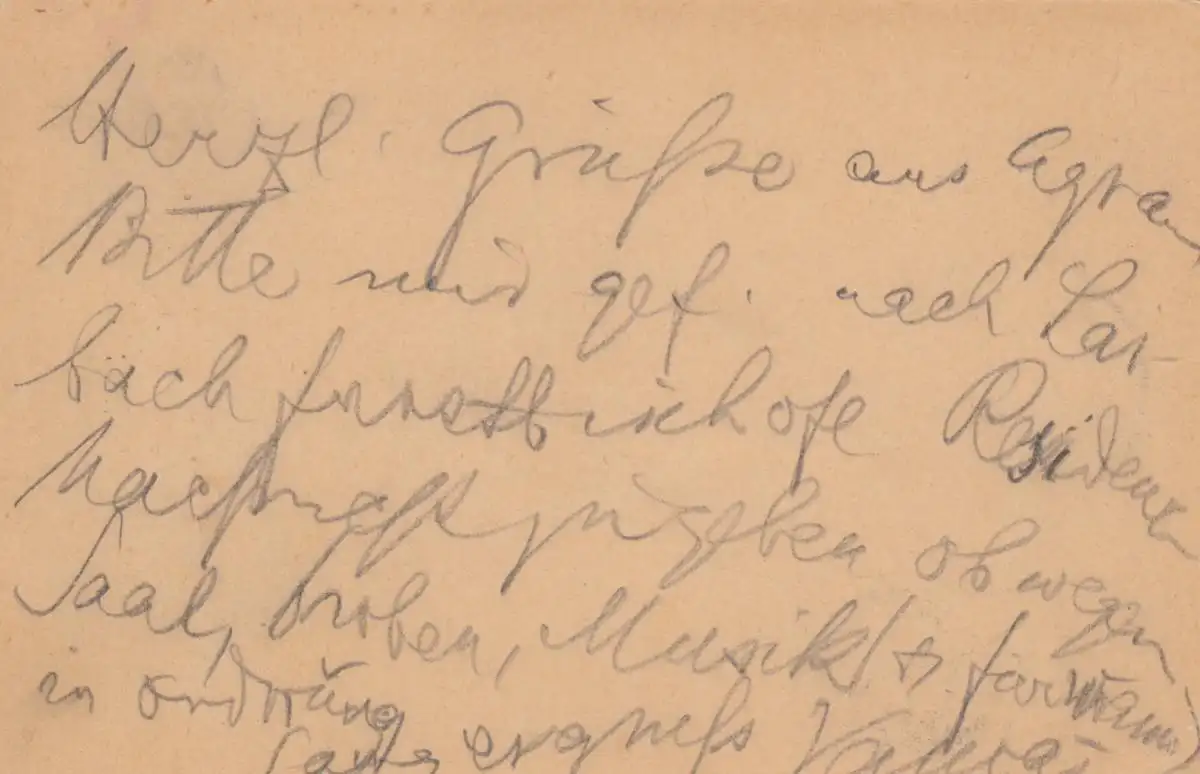 Herzl. Grüße aus Agram
Bitte mir gef. nach Lai-
bach fürstbischofl Residenz
Nachricht zu geben ob wegen
Saal, Proben, Musik
in Ordnung